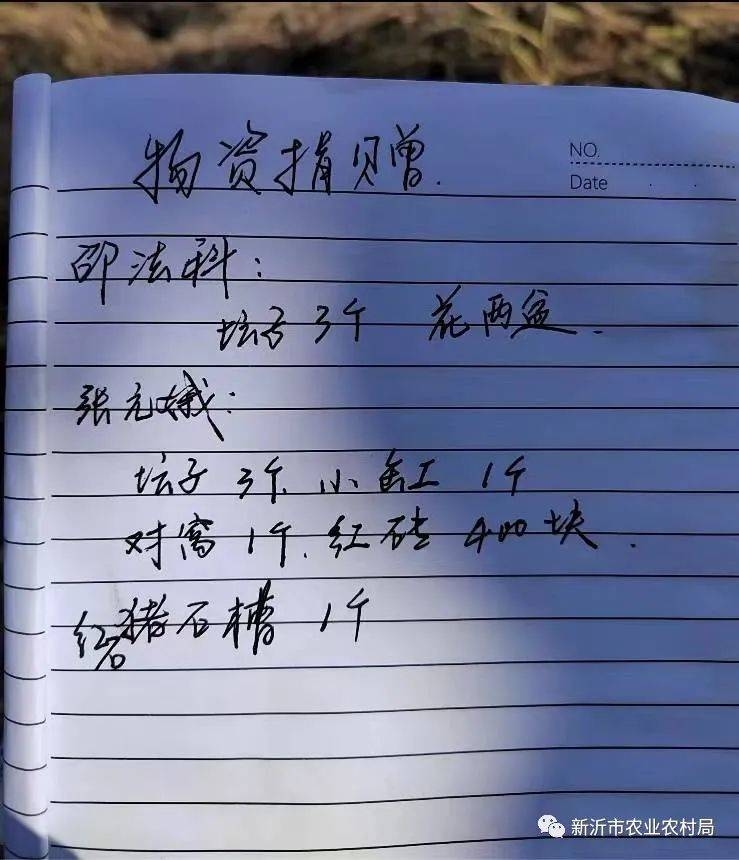 物资捐赠.
NO.
Date
邵法科:
坛子3个 花两盆.
张元娥:
坛子 3个. 小缸 1个
对窝 1个. 红砖 400块.
猪石槽 1个
新沂市农业农村局